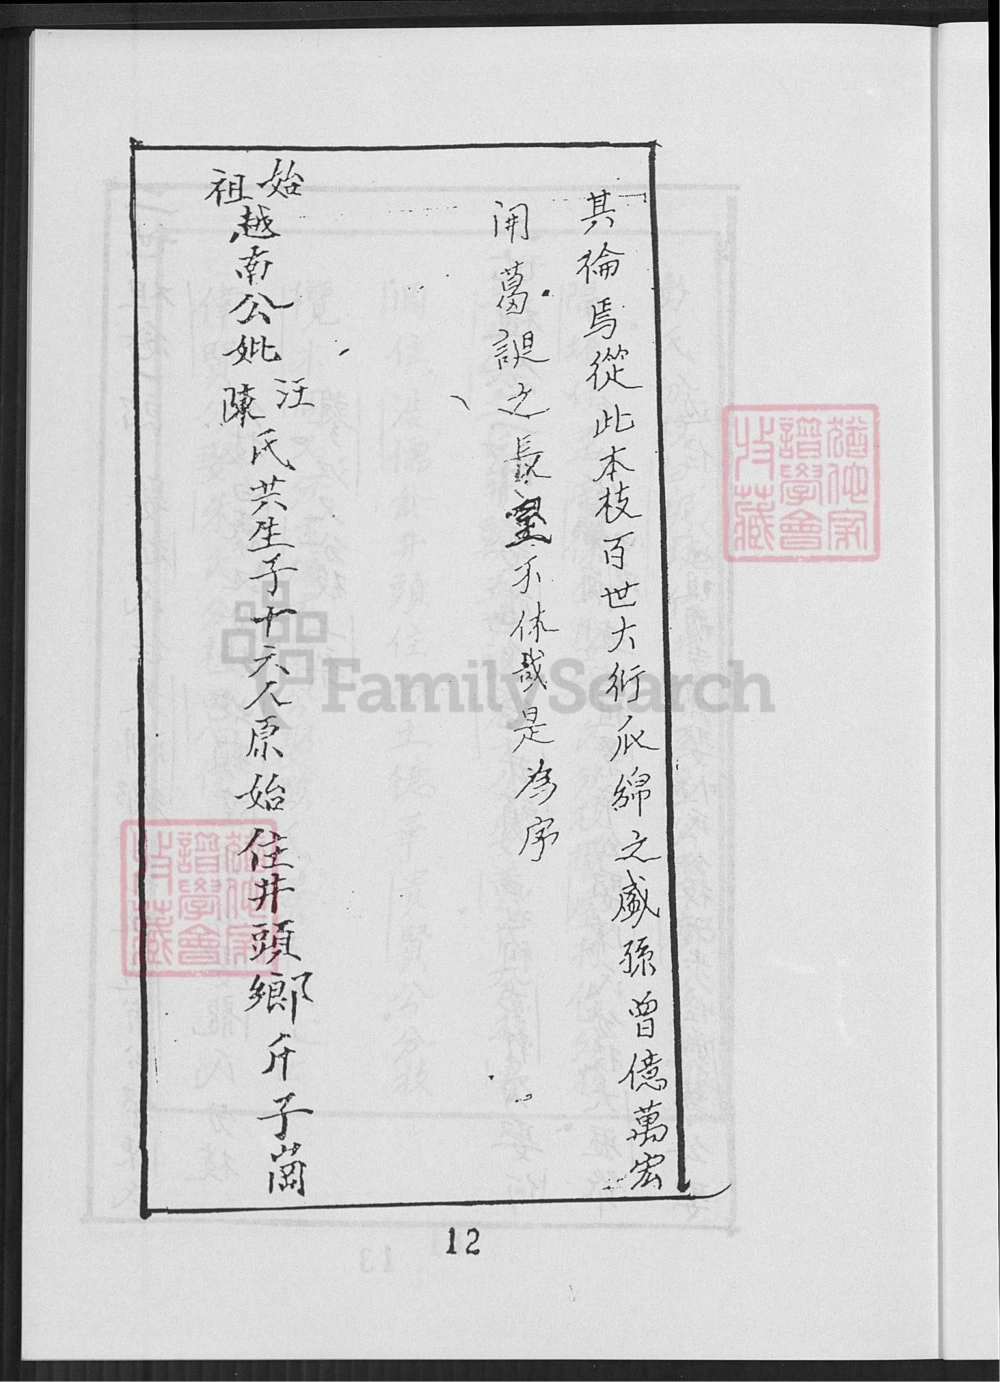 其倫焉從此本枝百世大衍瓜綿之盛孫曾億萬宏
開葛諟之長望不休哉是為序
始
祖
越南公妣
汪
陳
氏共生子十六人原始住井頭鄉斤子崗
12
猶他家
譜學會
收藏
猶他家
譜學會
收藏
FamilySearch